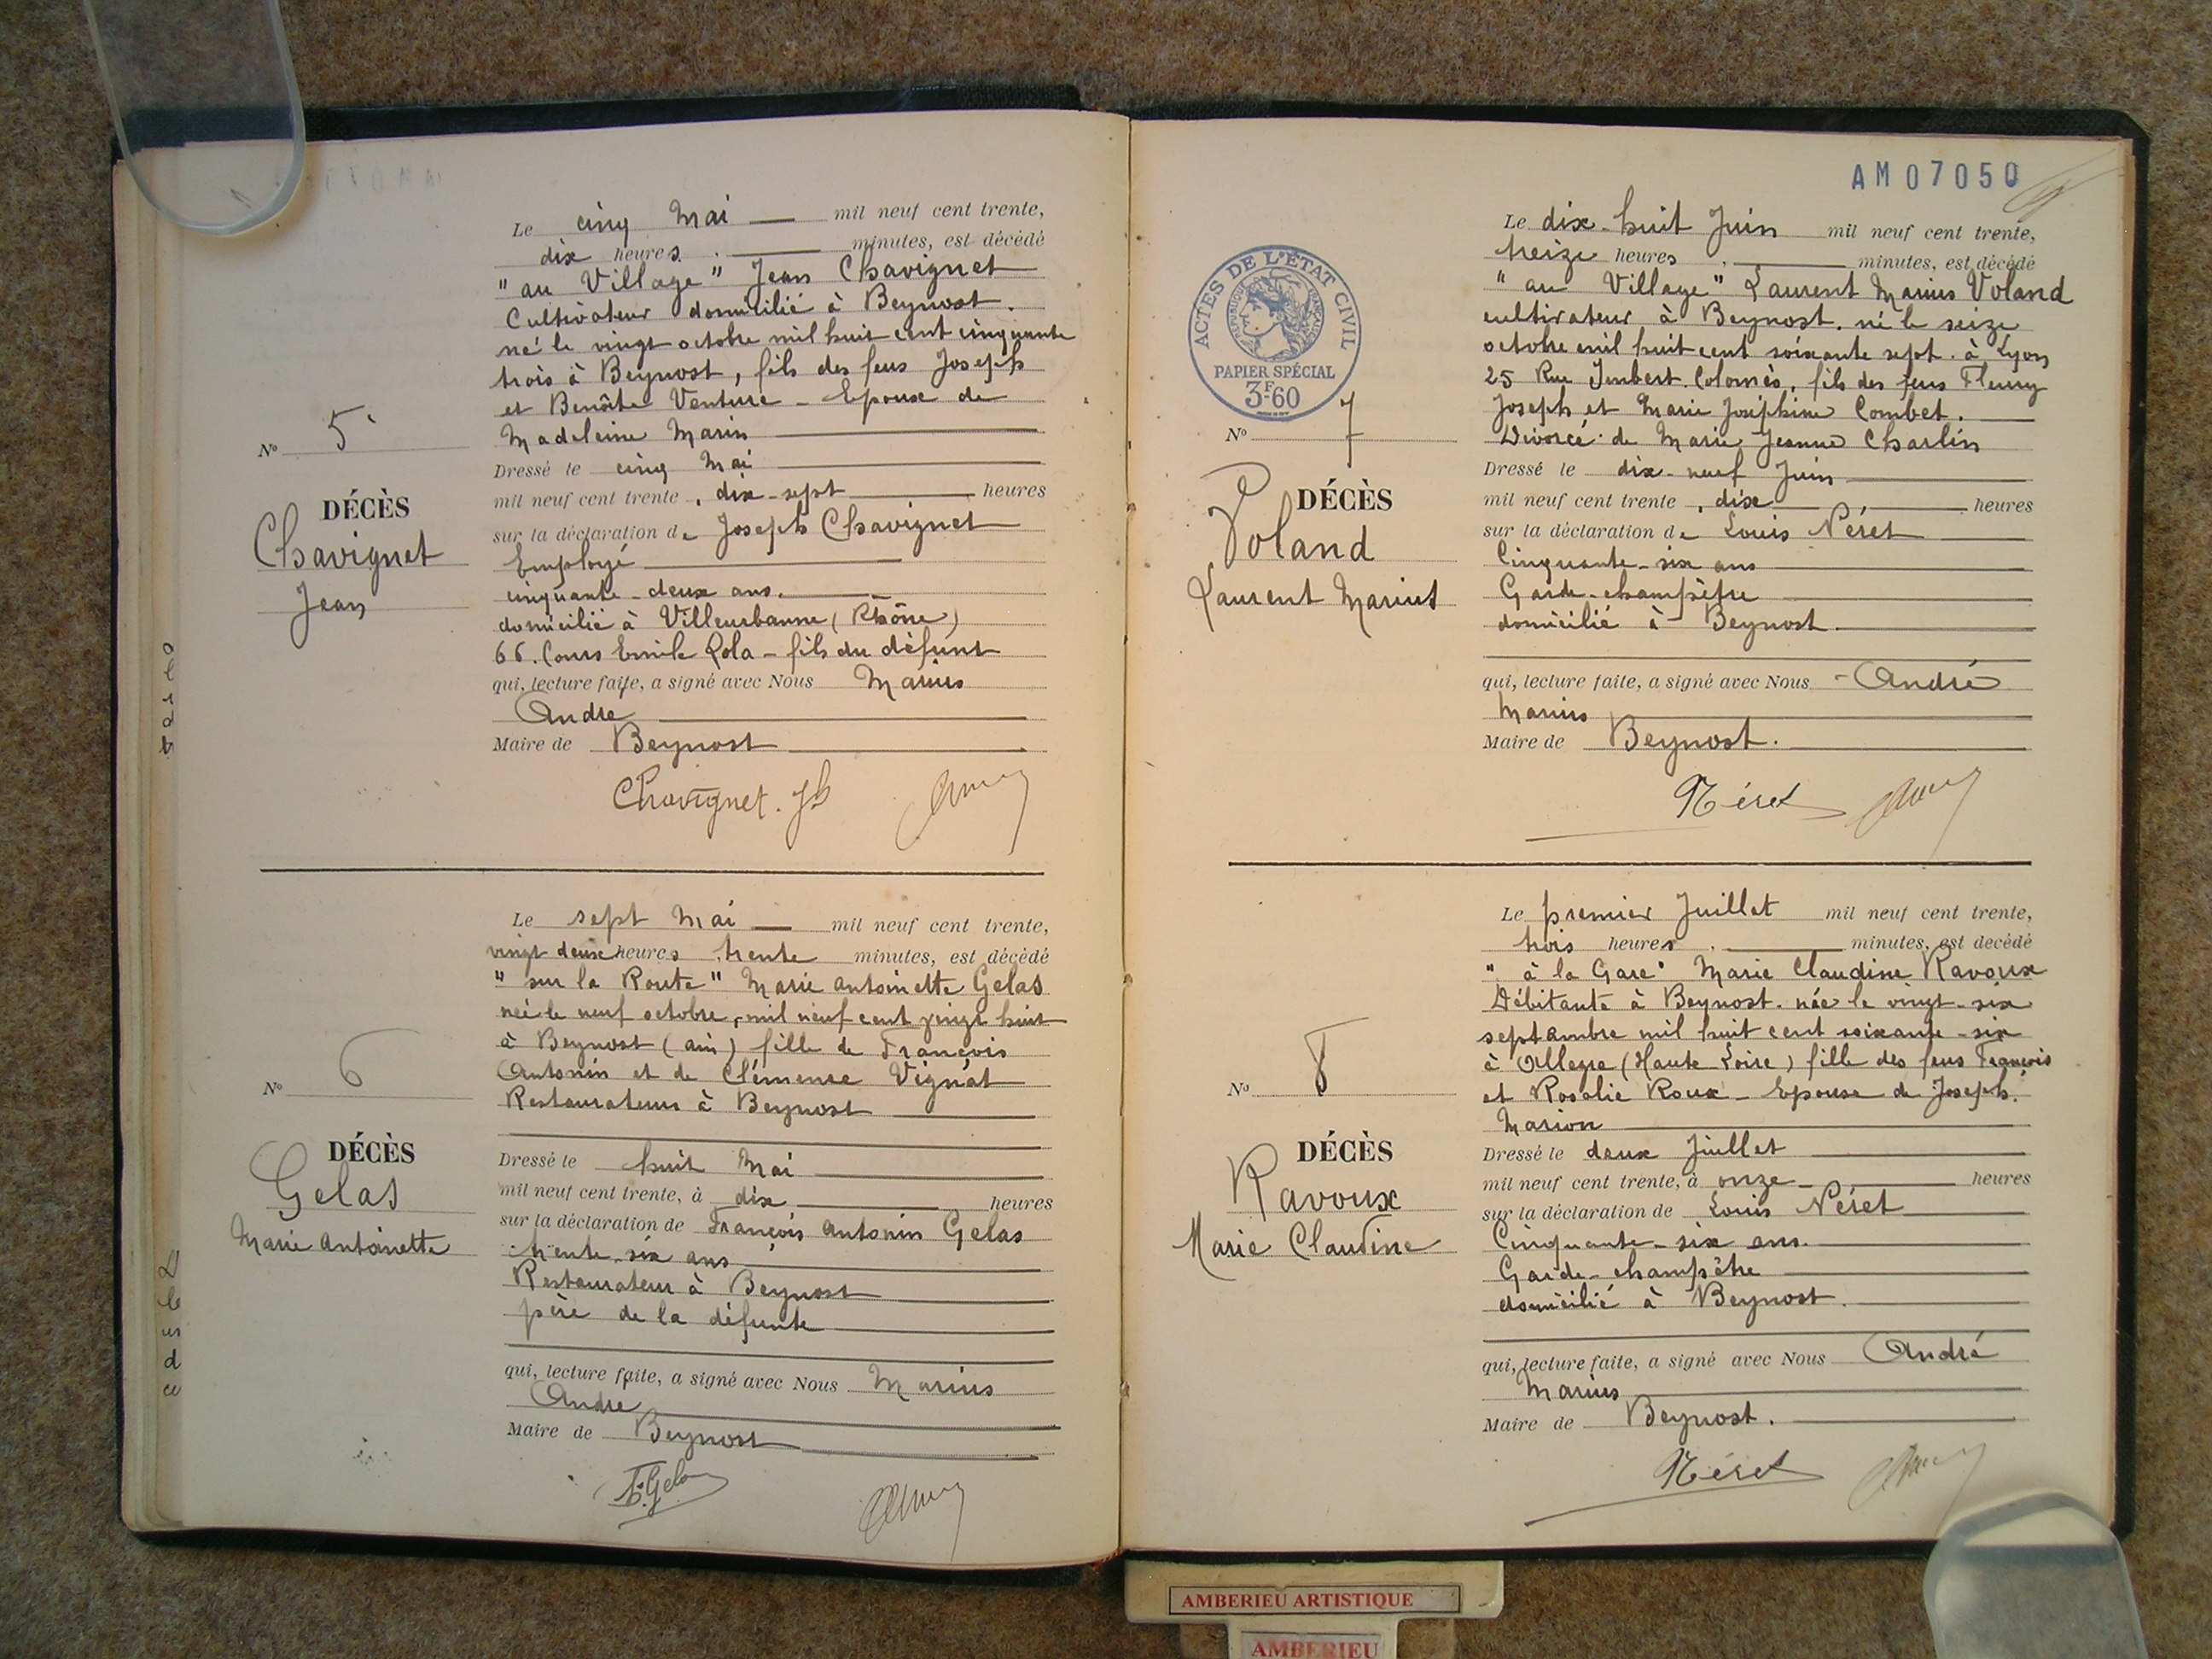 Le cinq Mai mil neuf cent trente,
dix heures minutes, est décédé
"au Village" Jean Chavignet
Cultivateur domicilié à Beynost.
né le vingt octobre mil huit cent cinquante
trois à Beynost, fils des feus Joseph
et Benoîte Venture - Epoux de
Madeleine Marin
Nº 5
DÉCÈS
Chavignet
Jean
Dressé le cinq Mai
mil neuf cent trente, dix-sept heures
sur la déclaration de Joseph Chavignet
Employé
cinquante-deux ans.
domicilié à Villeurbanne (Rhône)
66. Cours Emile Zola - fils du défunt
qui, lecture faite, a signé avec Nous Marius
Andre
Maire de Beynost
Chavignet. Jh
Le sept Mai mil neuf cent trente,
vingt deux heures trente minutes, est décédé
"sur la Route" Marie Antoinette Gelas
née le neuf octobre, mil neuf cent vingt huit
à Beynost (ain) fille de François
Antonin et de Clémence Vignat
Restaurateurs à Beynost
Nº 6
DÉCÈS
Gelas
Marie Antoinette
Dressé le huit Mai
mil neuf cent trente, à dix heures
sur la déclaration de François Antonin Gelas
trente-six ans
Restaurateur à Beynost
père de la défunte
qui, lecture faite, a signé avec Nous Marius
Andre
Maire de Beynost
F. Gelas
AM07050
ACTES DE L'ÉTAT CIVIL
RÉPUBLIQUE FRANÇAISE
PAPIER SPÉCIAL
3F60
Le dix-huit Juin mil neuf cent trente,
treize heures minutes, est décédé
"au Village" Laurent Marius Voland
cultivateur à Beynost. né le seize
octobre mil huit cent soixante sept. à Lyon
25 Rue Imbert. Colomès, fils des feus Fleury
Joseph et Marie Joséphine Combet.
Divorcé de Marie Jeanne Charlin
Nº 7
DÉCÈS
Voland
Laurent Marius
Dressé le dix-neuf Juin
mil neuf cent trente, dix heures
sur la déclaration de Louis Néret
Cinquante-six ans
Garde-champêtre
domicilié à Beynost.
qui, lecture faite, a signé avec Nous André
Marius
Maire de Beynost.
Néret
Le premier Juillet mil neuf cent trente,
trois heures minutes, est décédé
"à la Gare" Marie Claudine Ravoux
Débitante à Beynost. née le vingt-six
septembre mil huit cent soixante-six
à Allegre (Haute Loire) fille des feus François
et Rosalie Roux - Epouse de Joseph
Marion
Nº 8
DÉCÈS
Ravoux
Marie Claudine
Dressé le deux Juillet
mil neuf cent trente, à onze heures
sur la déclaration de Louis Néret
Cinquante-six ans.
Garde-champêtre
domicilié à Beynost.
qui, lecture faite, a signé avec Nous André
Marius
Maire de Beynost.
Néret
AMBERIEU ARTISTIQUE
AMBERIEU